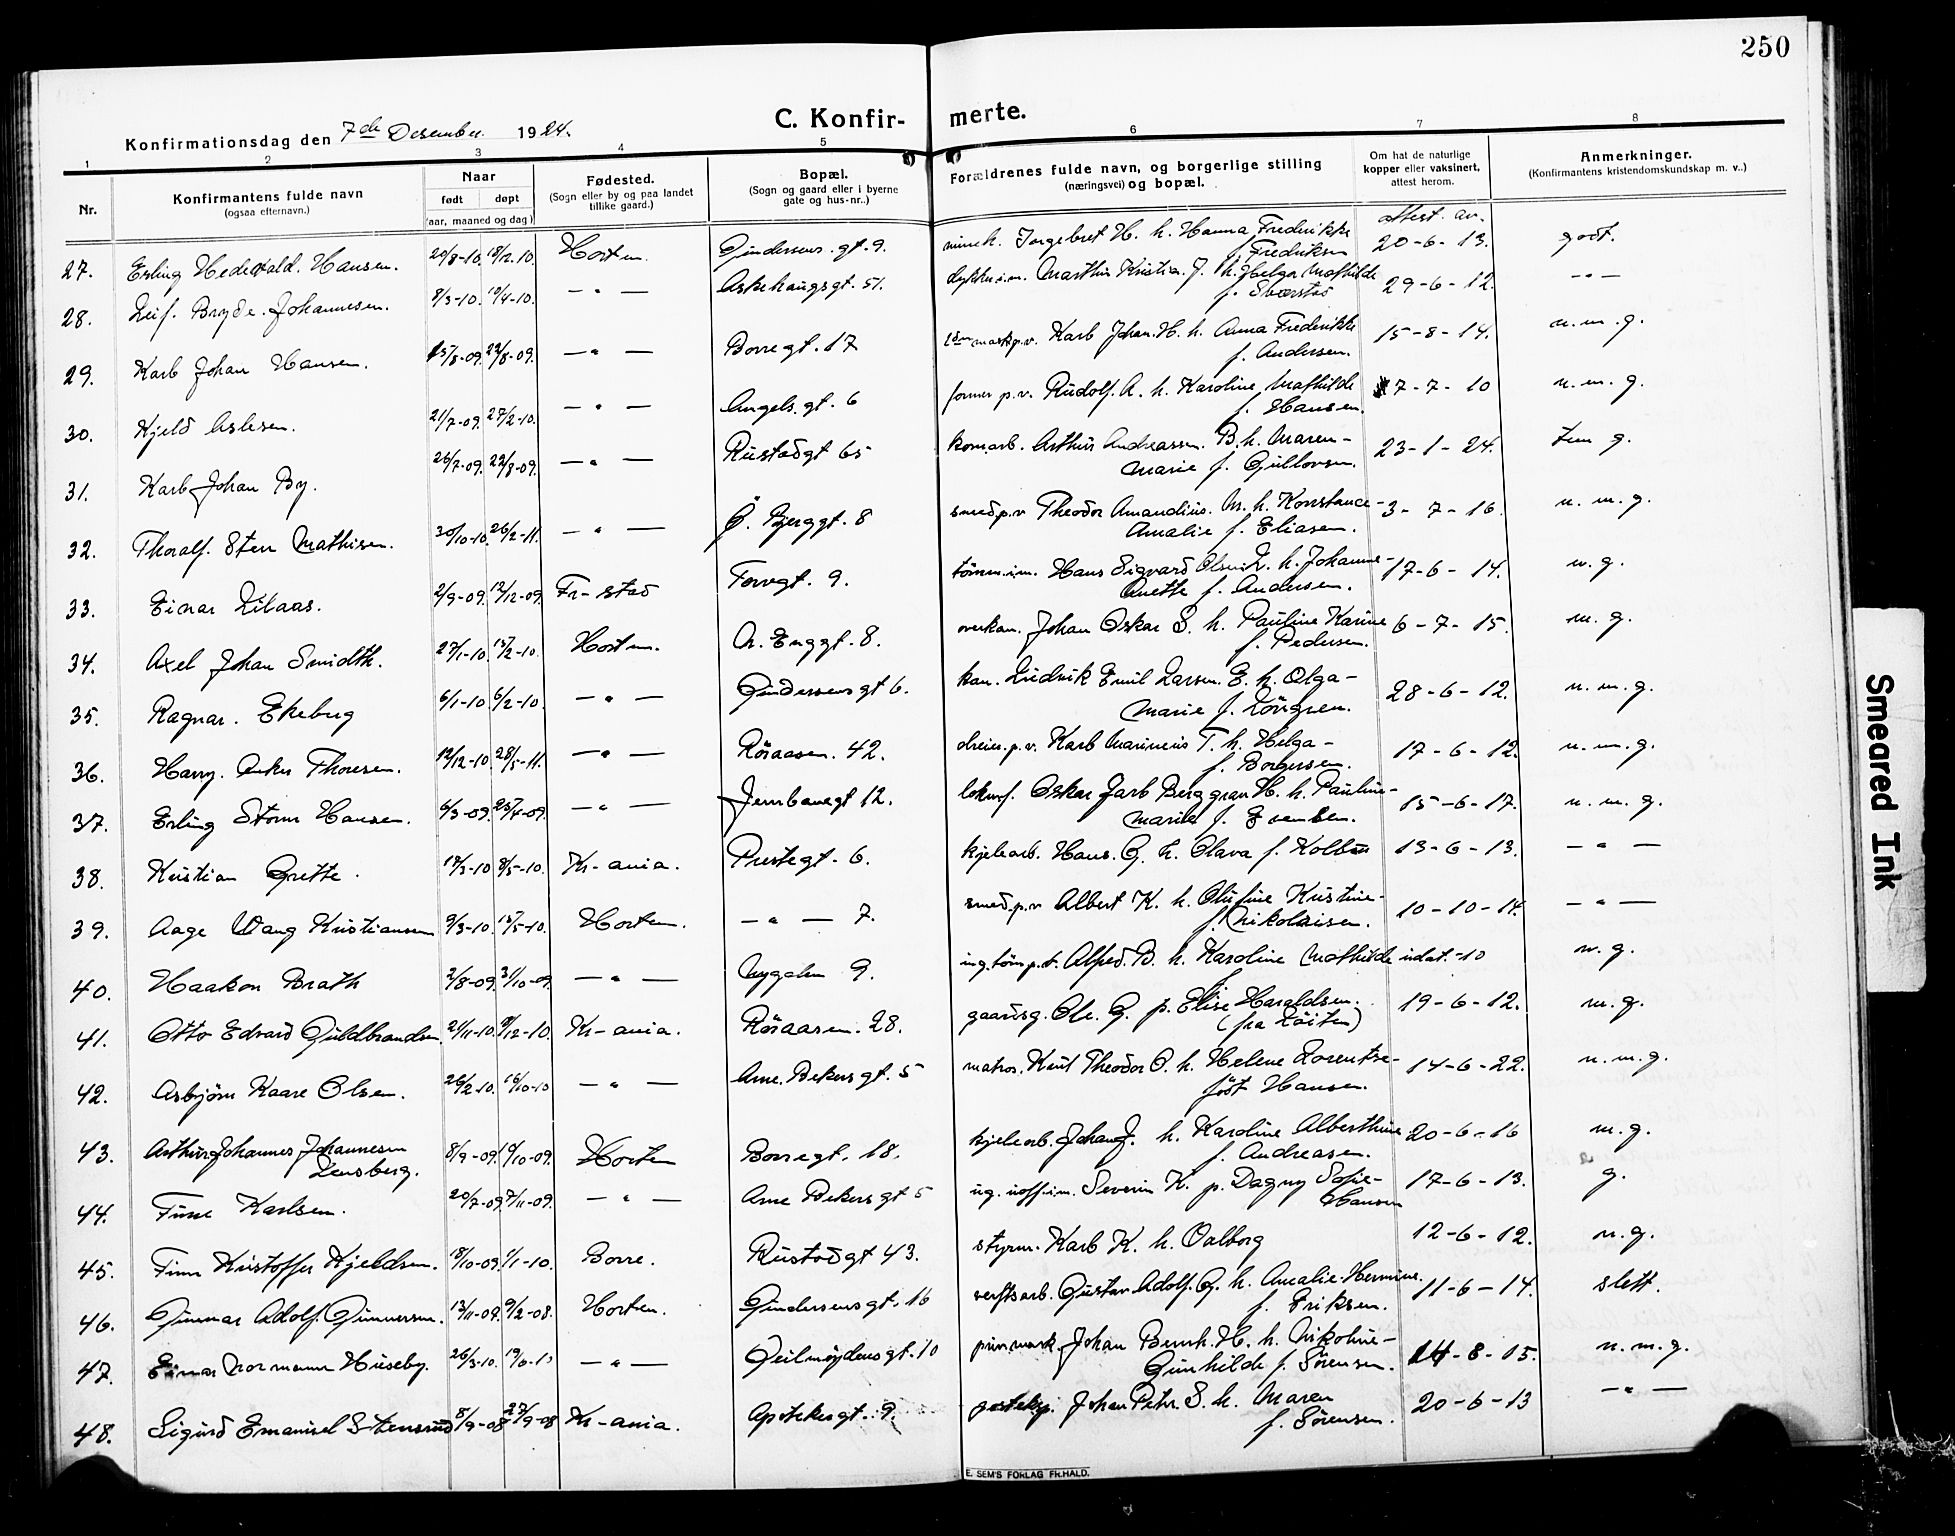 250
Konfirmationsdag den 7de Desember 1924.
C. Konfir- merte.
1 2 3 4 5 6 7 8
Nr.
Konfirmantens fulde navn
(ogsaa efternavn.)
Naar
født døpt
(aar, maaned og dag)
Fødested.
(Sogn eller by og paa landet
tillike gaard.)
Bopæl.
(Sogn og gaard eller i byerne
gate og hus-nr..)
Forældrenes fulde navn, og borgerlige stilling
(næringsvei) og bopæl.
Om hat de naturlige
kopper eller vaksinert,
attest herom.
Anmerkninger.
(Konfirmantens kristendomskundskap m. v..)
attest. av.
27. Erling Hansen. 20/8-10. 18/12.10. Horten. gt. 9. H. h. Hanna Fredrikke 20-6-13. godt.
Fredriksen
28. Leif. Bryde. Johannesen. 8/3-10. 10/4-10. — " — Askehaugsgt. 51. J. h. Helga Mathilde 29-6-12. — " —
f.
29. Karl Johan Hansen. 15/8-09. 22/8-09. — " — Borregt. 17 Karl Johan. H. h. Anna Fredrikke 15-8-14. n. m. g.
f. Andersen.
30. Kjeld Aslesen. 21/7-09. 27/2-10. — " — Angels. gt. 6 former p.v. Rudolf. A. h. Karoline Mathilde 7-7-10 n. m. g.
f. Hansen.
31. Karl Johan By. 26/7-09. 22/8-09. — " — Rustadgt 65 Arthur Andreassen. B. h. Maren- 23-1-24. g.
Marie f. Gullovsen.
32. Thoralf. Sten Mathisen. 30/10-10. 26/2-11. — " — Ø. Bjerggt. 8 smed p.v Theodor Amandius. M. h. Konstance- 3-7-16. n. m. g.
Amalie f. Eliasen.
33. Einar Lilaas. 2/9-09. 12/12-09. Fr-stad Torvgt. 9. Hans Sigvard Olsen L. h. Johanne- 17-6-14. m. g.
Anette f. Andersen.
34. Axel Johan Smidth. 27/1-10. 15/2-10. Horten. N. Enggt. 8. overkan. Johan Oskar S. h. Pauline Karine 6-7-15. m. g.
f. Pedersen.
35. Ragnar. Ekeberg 6/1-10. 6/2-10. — " — gt 6. kan. Ludvik Emil Larsen. E. h. Olga- 28-6-12. n. m. g.
Marie f. Lövgren.
36. Harry. Anker Thoresen. 12/12-10. 28/5-11. — " — Röraasen. 42. dreier. p.v. Karl Marinius T. h. Helga- 17-6-12. n. m. g.
f. Borgersen.
37. Erling Storm Hansen. 6/3-09. 25/4-09. — " — Jernbanegt 12. lokomf. Oskar Jarl Berggrav H. h. Pauline- 15-6-17. n. m. g.
Marie f.
38. Kristian Grette. 18/3-10 8/5-10. Kr-ania. Prestegt. 6. kjelearb. Hans. G. h. Olava f. 13-6-13. — " —
39. Aage Wang Kristiansen 9/3-10. 15/5-10. Horten. — " — 7. smed p.v Albert K. h. Olufine Kristine- 10-10-14. — " —
f. Nikolaisen.
40. Haakon Brath 2/8-09. 31/10-09. — " — Nygaten 9. Alfred. B. h. Karoline Mathilde udat.-10 m. g.
41. Otto Edvard Guldbrandsen 21/11-10. 8/12-10. Kr-ania. Röraasen. 28. gaardsg. Ole. G. p. Elise Haraldsen. 19-6-12. m. g.
(fra Löiten)
42. Asbjörn Kaare Olsen. 26/2-10. 16/10-10 — " — Arne. Bekersgt. 5 matros. Knut Theodor O. h. Helene Lorentse- 14-6-22. n. m. g.
födt Hansen.
43. Arthur Johannes Johannesen 8/9-09. 10/10-09. Horten Borregt. 18. kjelearb. Johan J. h. Karoline Alberthine 20-6-16 m. g.
Lensberg. f. Andreasen.
44. Tune Karlsen. 20/7-09. 7/11-09. — " — Arne Bekersgt 5 Severin K. p. Dagny Sofie- 17-6-13. g.
Hansen
45. Finn Kristoffer Kjeldsen. 18/10-09. 1/1-10. Borre. Rustadgt 43. styrm. Karl K. h. Valborg 12-6-12. m. g.
46. Gunnar Adolf. Gunnersen. 13/11-09. 9/2-08. Horten. gt. 16 verftsarb. Gustav Adolf. G. h. Amalie Hermine. 11-6-14. slett.
f. Eriksen.
47. Einar Normann Huseby. 26/3-10. — " — gt. 10 Johan Bernh. H. h. Nikoline- 14-8-15. n. m. g.
Gunhilde f. Sörensen.
48. Sigurd Emanuel Stensrud 8/9-08 27/9-08 Kr-ania. Apotekergt. 9. postekp. Johan Peter S. h. Maren 20-6-13 — " —
f. Sörensen.
E. SEM'S FORLAG FR.HALD.
Smeared Ink